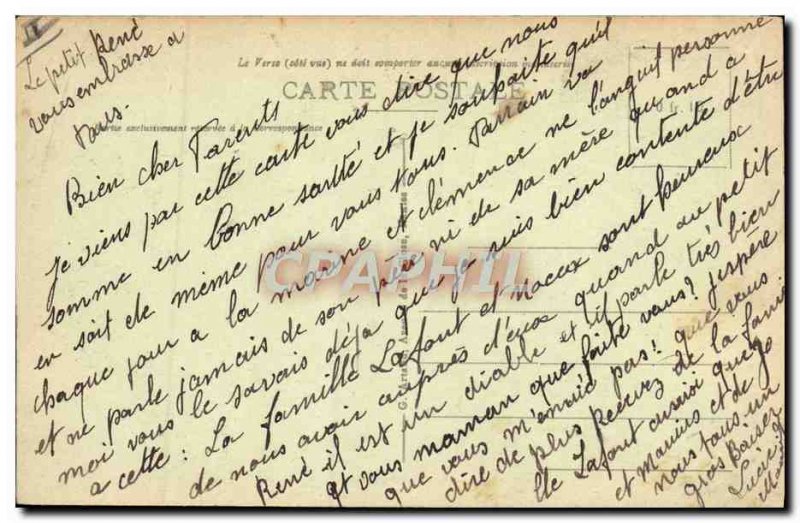 Le petit René
vous embrasse a
tous.
Le Verso (côté vue) ne doit comporter aucune inscription
CARTE POSTALE
Partie exclusivement réservée à la correspondance
CPAPHIL
Bien cher Parents
Je viens par cette carte vous dire que nous
somme en bonne santé et je souhaite qu'il
en soit de même pour vous tous. Parrain va
chaque jour a la marine et clémence ne languit personne
et ne parle jamais de son père ni de sa mère quand a
moi vous le savais déja que je suis bien contente d'être
a cette: La famille Lafont et sont heureux
de nous avoir auprès d'eux quand au petit
René il est un diable et il parle très bien
et vous maman que faite vous? J'espère
que vous m'envoie pas! que vous
dire de plus Recevez de la famille
de Lafont que
et Marius et de
nous tous un
gros Baiser
Lucie